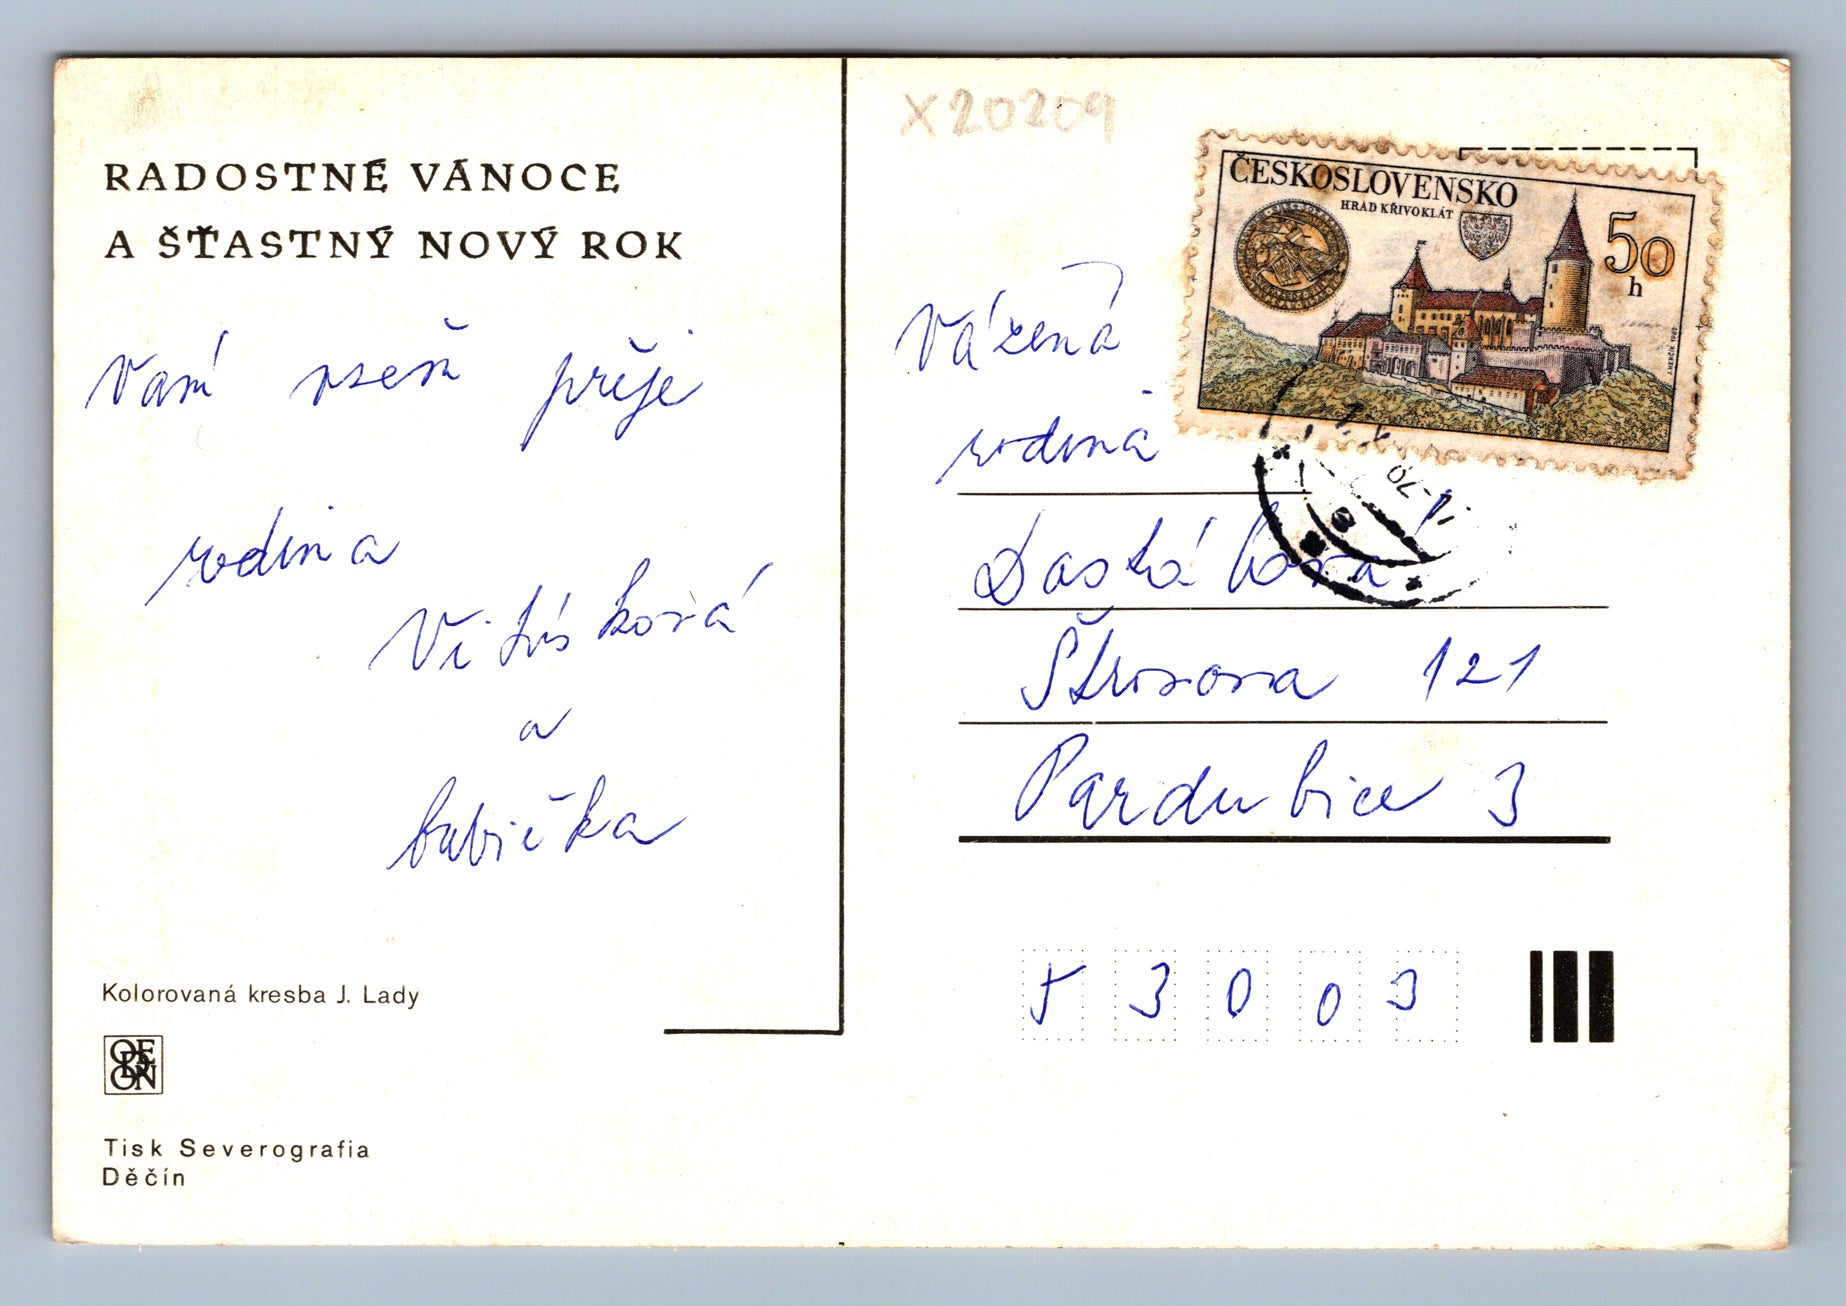 RADOSTNÉ VÁNOCE
A ŠŤASTNÝ NOVÝ ROK
Vám všem přeje
rodina
Vitásková
a
babička
Kolorovaná kresba J. Lady
ODEON
Tisk Severografia
Děčín
X20209
ČESKOSLOVENSKO
HRAD KŘIVOKLÁT
50
h
J. HERČÍK 1982
Vážená
rodina
Štrosova 121
Pardubice 3
53003